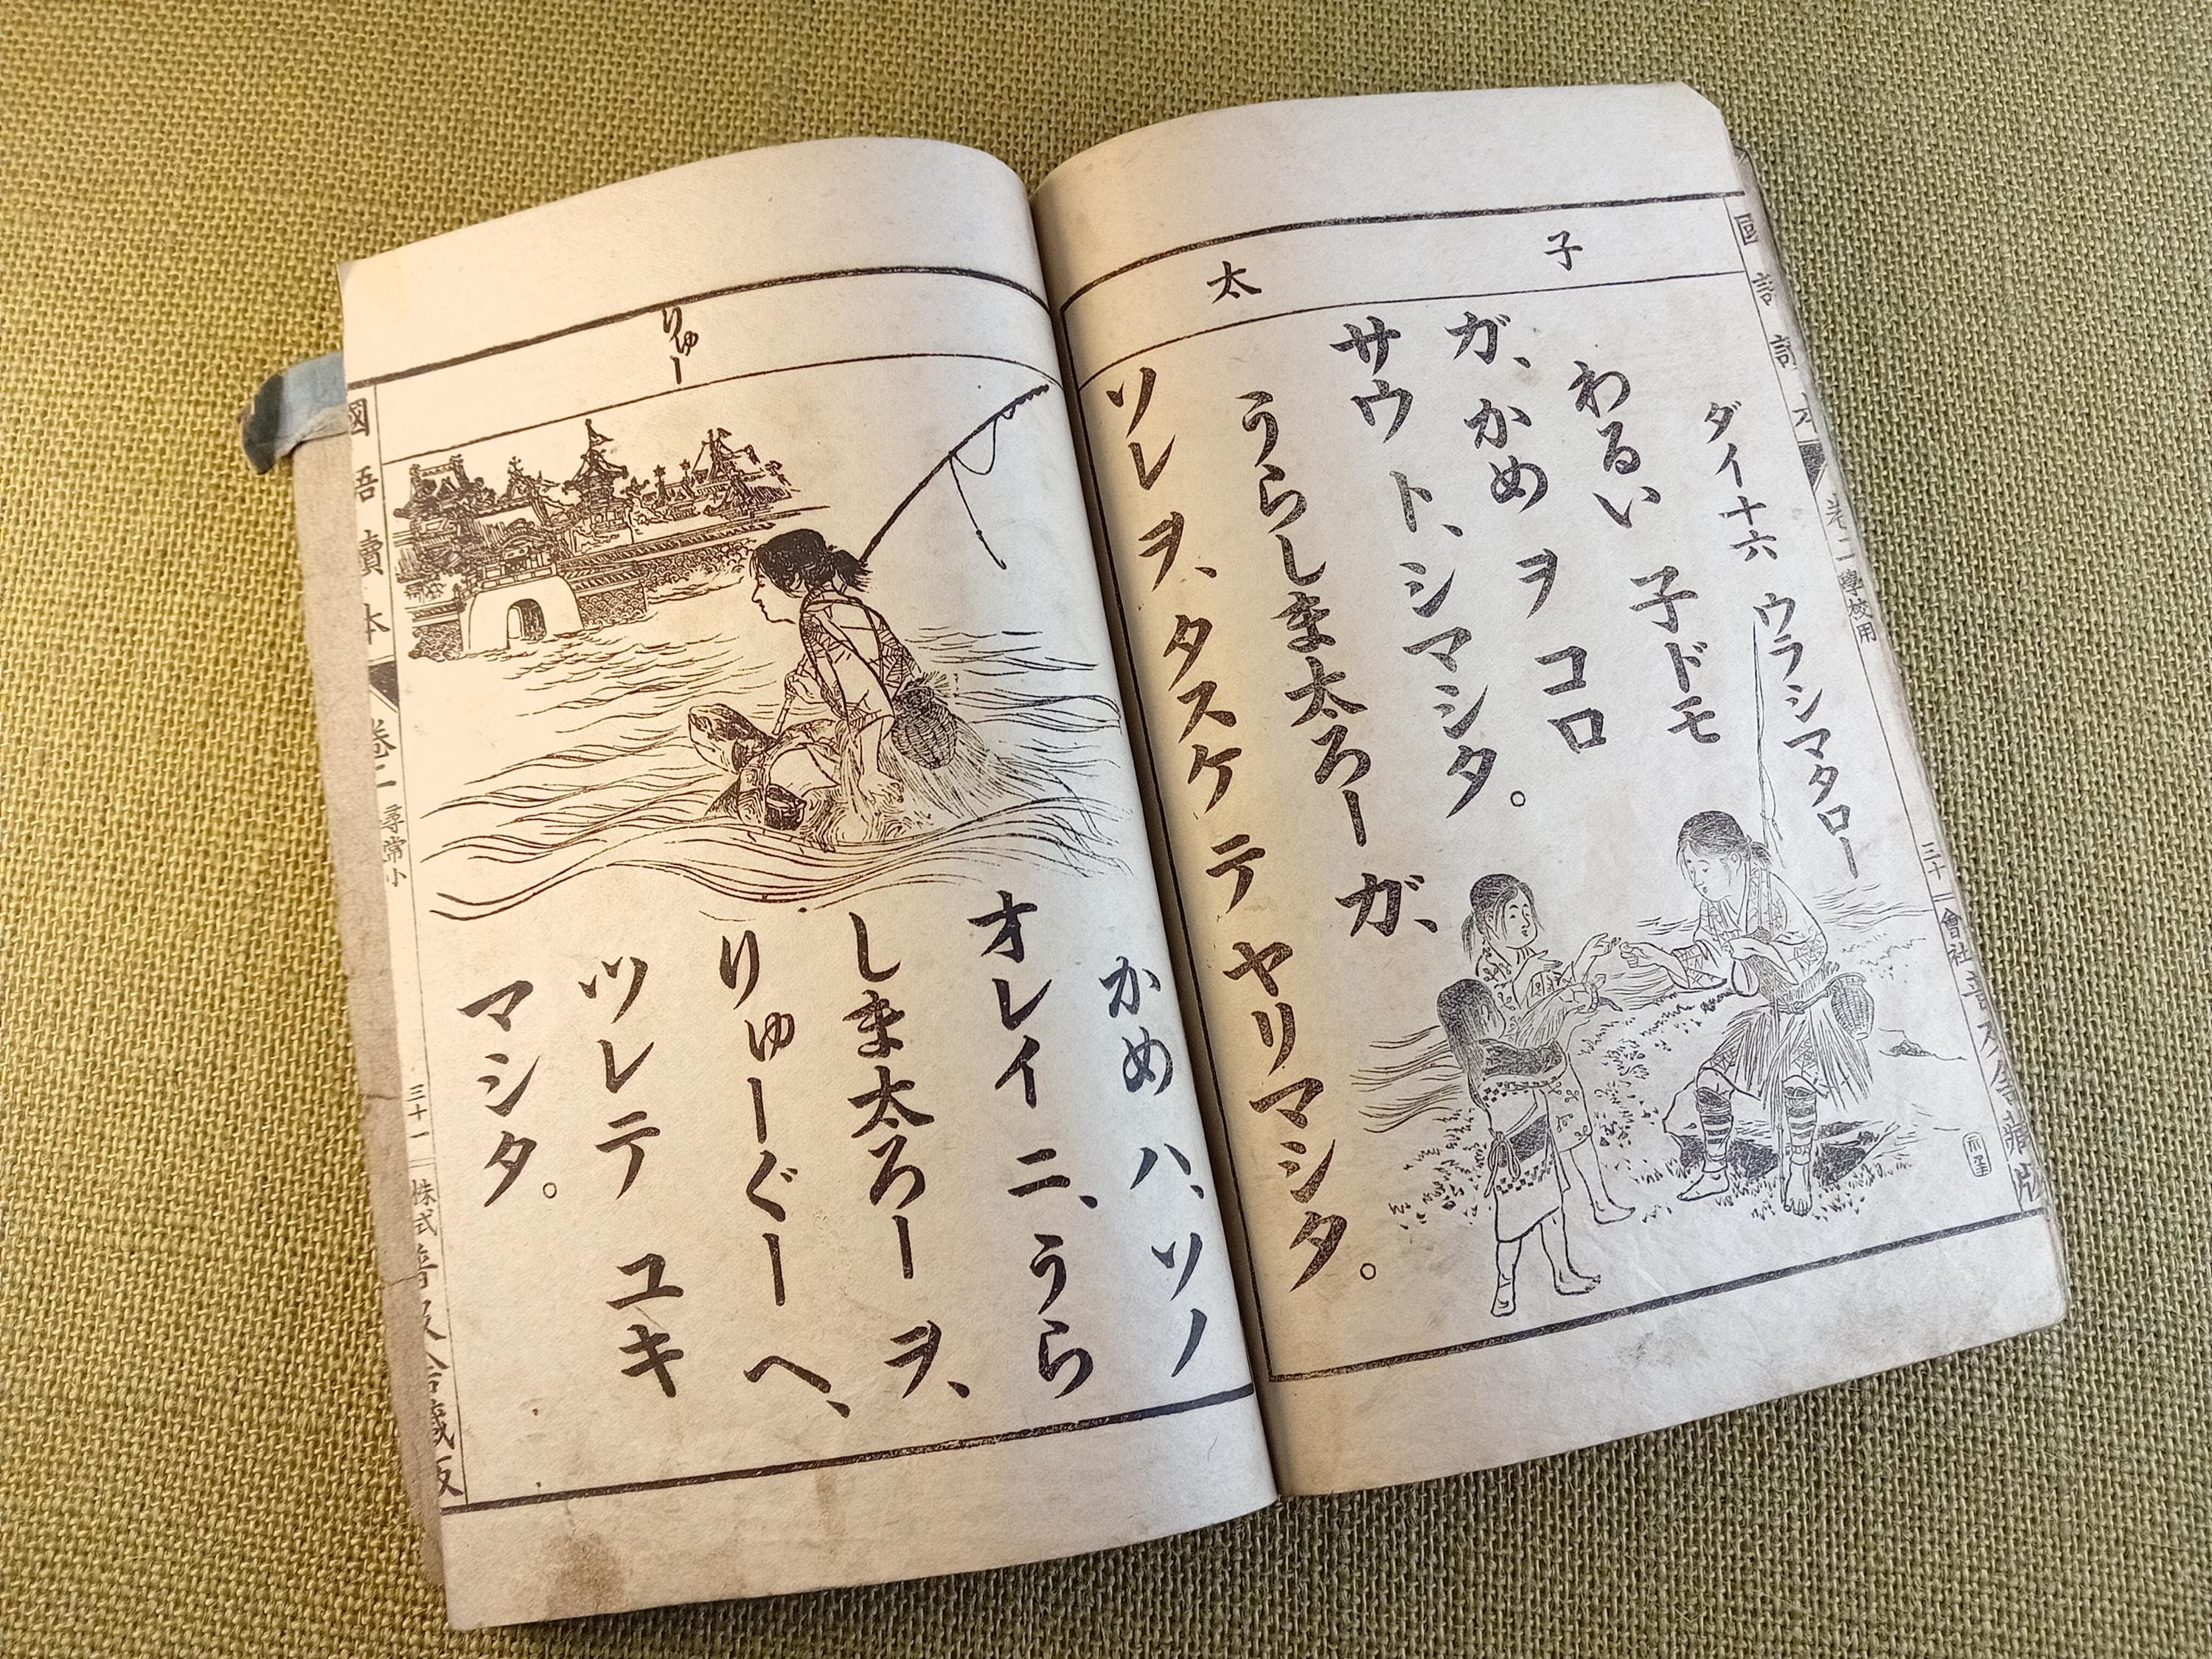 子
太
ダイ十六 ウラシマタロー
わるい 子ドモ
ガ、かめ ヲ コロ
サウ ト、シマシタ。
うらしま太ろー ガ、
ソレ ヲ、タスケ テ ヤリマシタ。
りゅー
かめ ハ、ソノ
オレイ ニ、うら
しま太ろー ヲ、
りゅーぐー ヘ、
ツレテ ユキ
マシタ。
國語讀本 卷二 尋常小
三十一
株式
卷二 學校用
三十一
會社